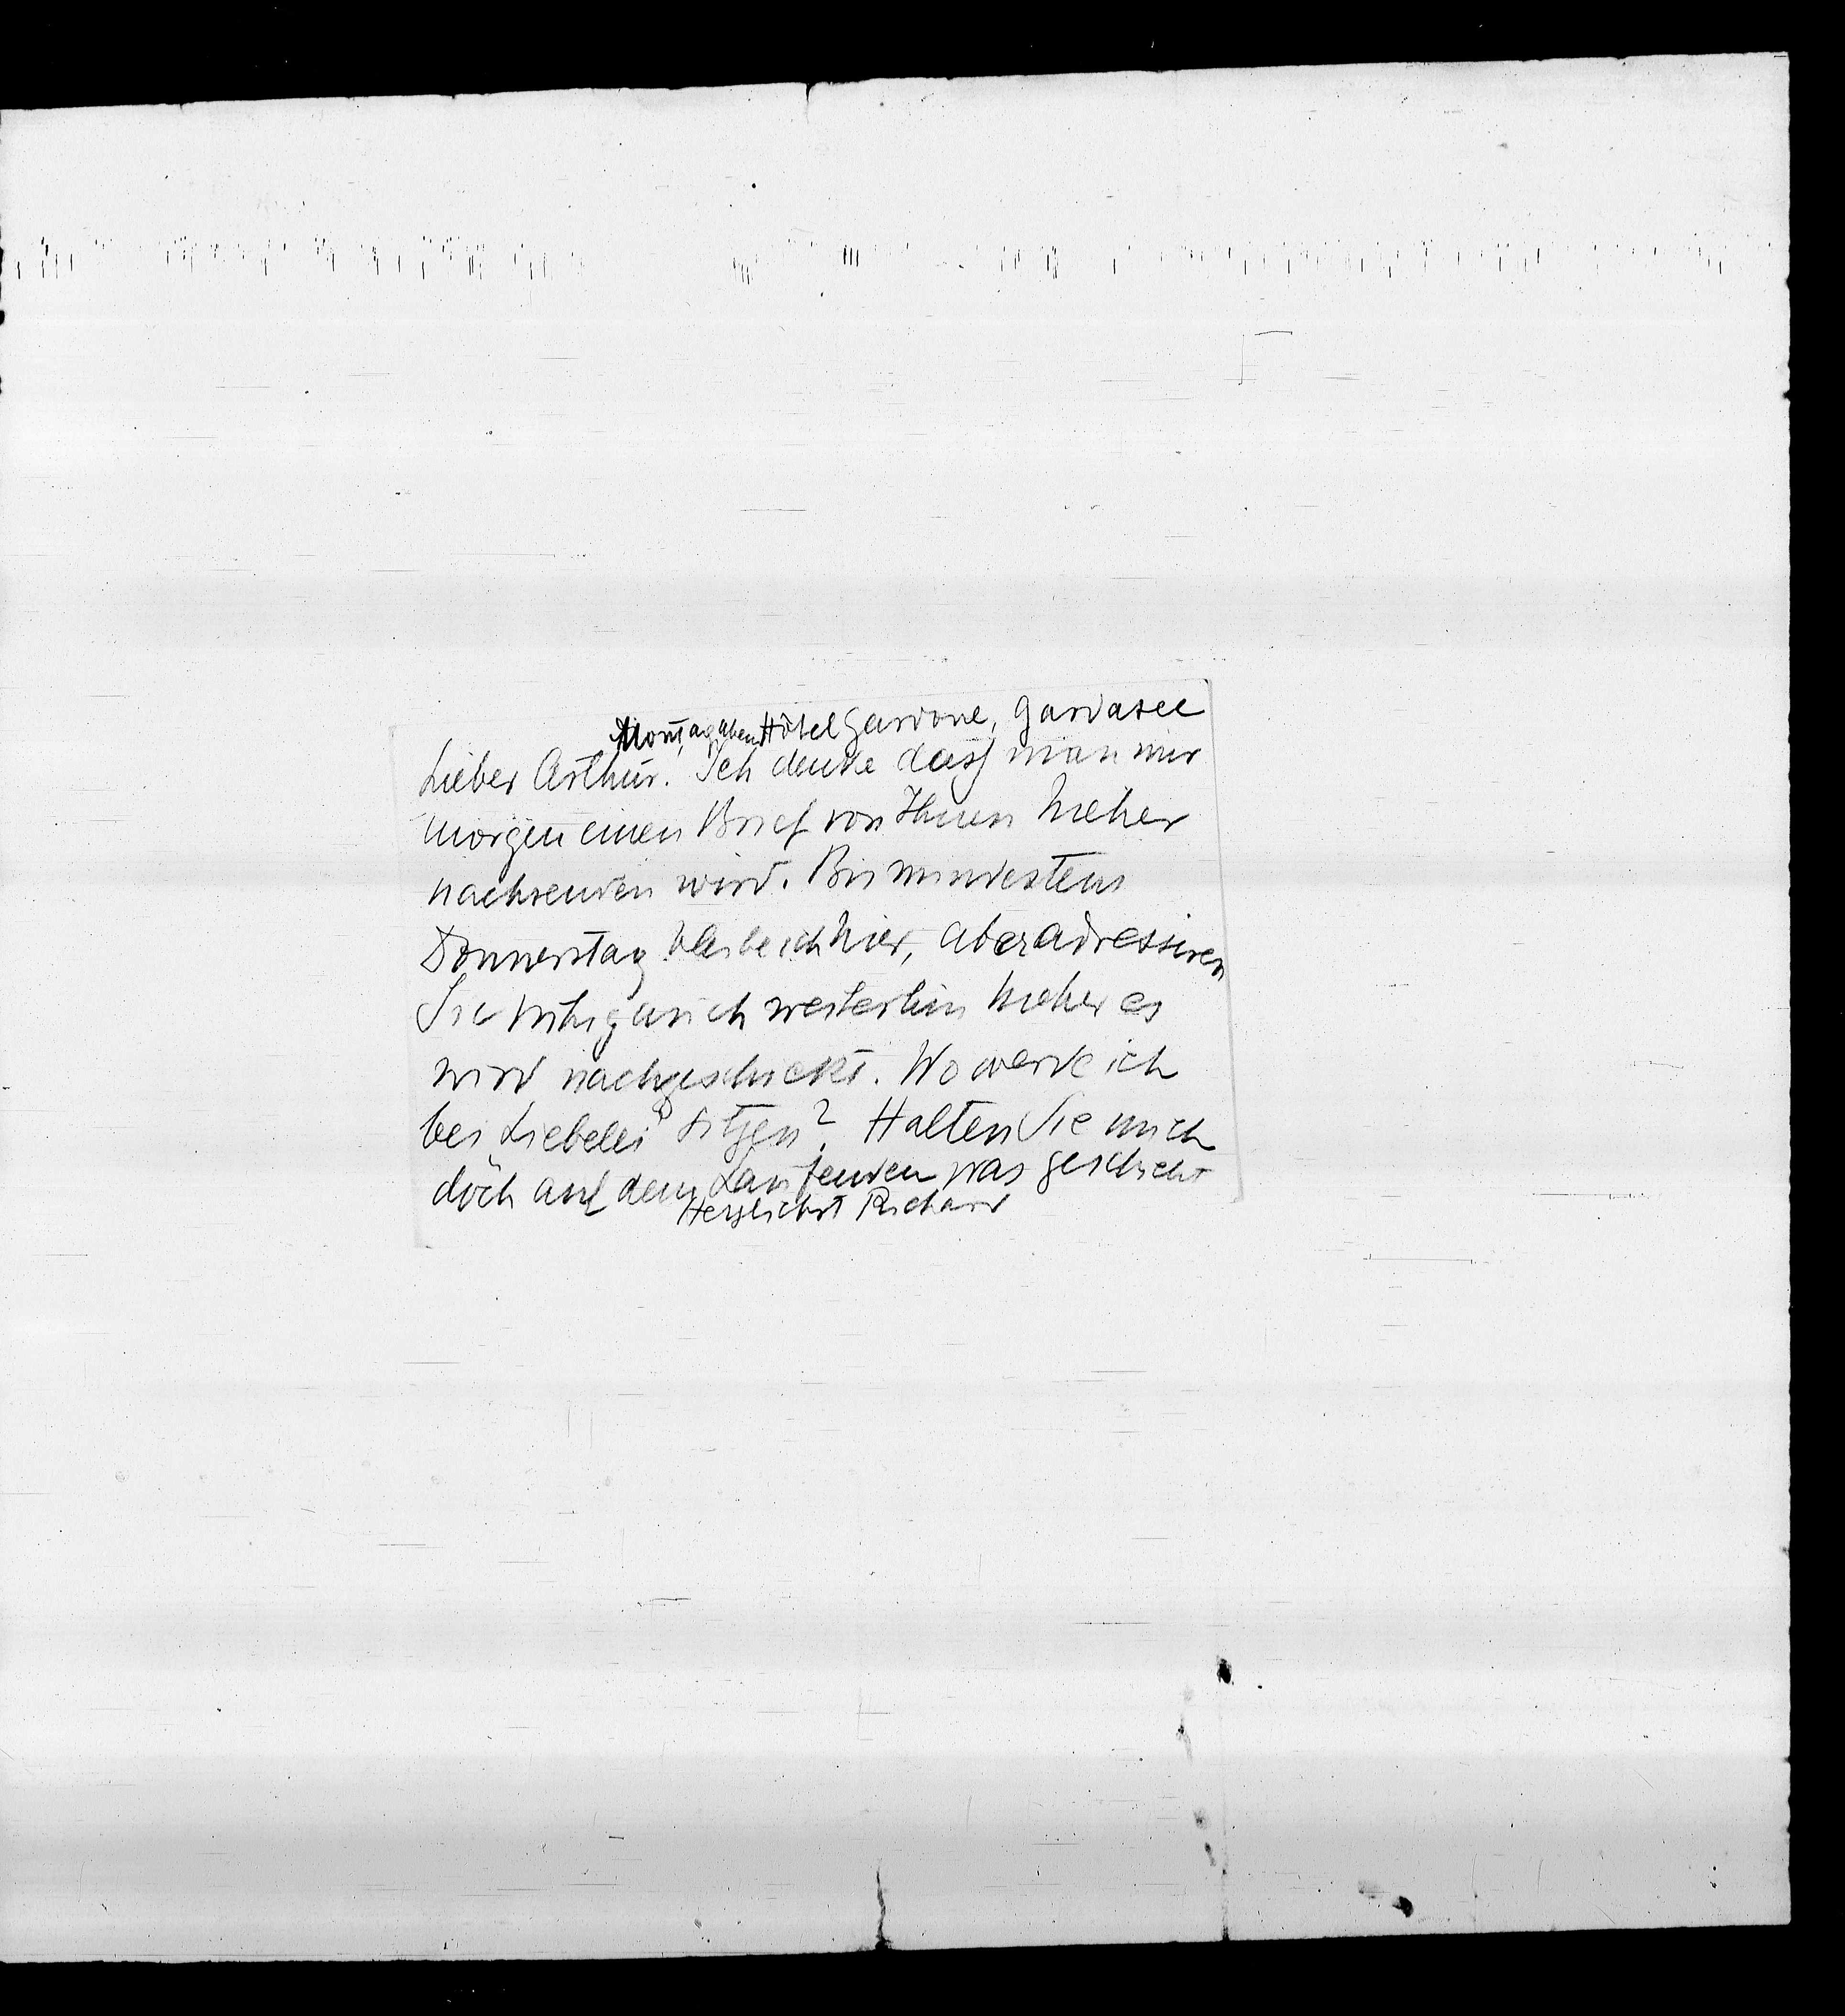 Montag Abend Hôtel Gardone, Gardasee
Lieber Arthur. Ich denke dass man mir
morgen einen Brief von Ihnen hieher
nachsenden wird. Bis mindestens
Donnerstag bleibe ich hier, aber adressiren
Sie ruhig auch weiterhin hieher es
wird nachgeschickt. Wo werde ich
bei „Liebelei“ sitzen? Halten Sie mich
doch auf dem Laufenden was geschieht
Herzlichst Richard